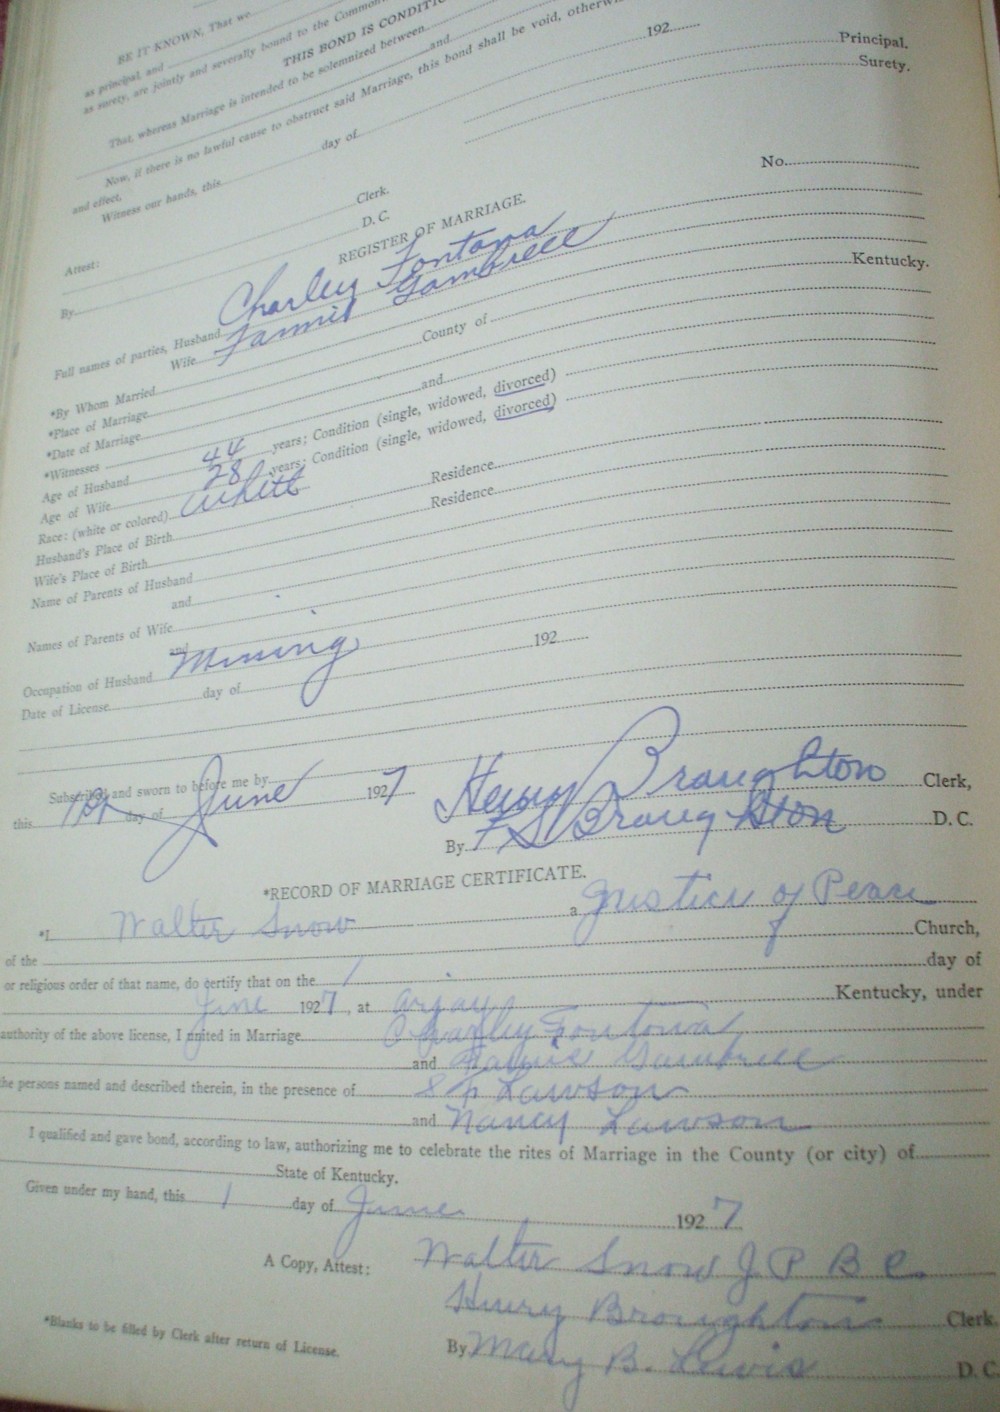 BE IT KNOWN, That we
as principal, and
as surety, are jointly and severally bound to the Common
THIS BOND IS CONDITIO
That, whereas Marriage is intended to be solemnized between
and
Now, if there is no lawful cause to obstruct said Marriage, this bond shall be void, otherwi
and effect.
Witness our hands, this day of 192
Principal.
Surety.
Attest: Clerk.
By D. C.
No.
REGISTER OF MARRIAGE.
Full names of parties, Husband Charley Fontana
Wife Fannie Gambrell
*By Whom Married
*Place of Marriage County of Kentucky.
*Date of Marriage
*Witnesses and
Age of Husband 44 years; Condition (single, widowed, divorced)
Age of Wife 28 years; Condition (single, widowed, divorced)
Race: (white or colored) White
Husband's Place of Birth Residence
Wife's Place of Birth Residence
Name of Parents of Husband
and
Names of Parents of Wife
and
Occupation of Husband Mining
Date of License day of 192
Subscribed and sworn to before me by
this 1st day of June 1927 Henry Broughton Clerk,
By F S Broughton D. C.
*RECORD OF MARRIAGE CERTIFICATE.
*I Walter Snow a Justice of Peace
of the Church,
or religious order of that name, do certify that on the 1 day of
June 1927, at Arjay Kentucky, under
authority of the above license, I united in Marriage Charley Fontana
and Fannie Gambrell
the persons named and described therein, in the presence of Lawson
and Nancy Lawson
I qualified and gave bond, according to law, authorizing me to celebrate the rites of Marriage in the County (or city) of
State of Kentucky.
Given under my hand, this 1 day of June 1927
A Copy, Attest: Walter Snow J. P. B C.
Henry Broughton Clerk.
*Blanks to be filled by Clerk after return of License.
By Mary B. Lewis D. C.